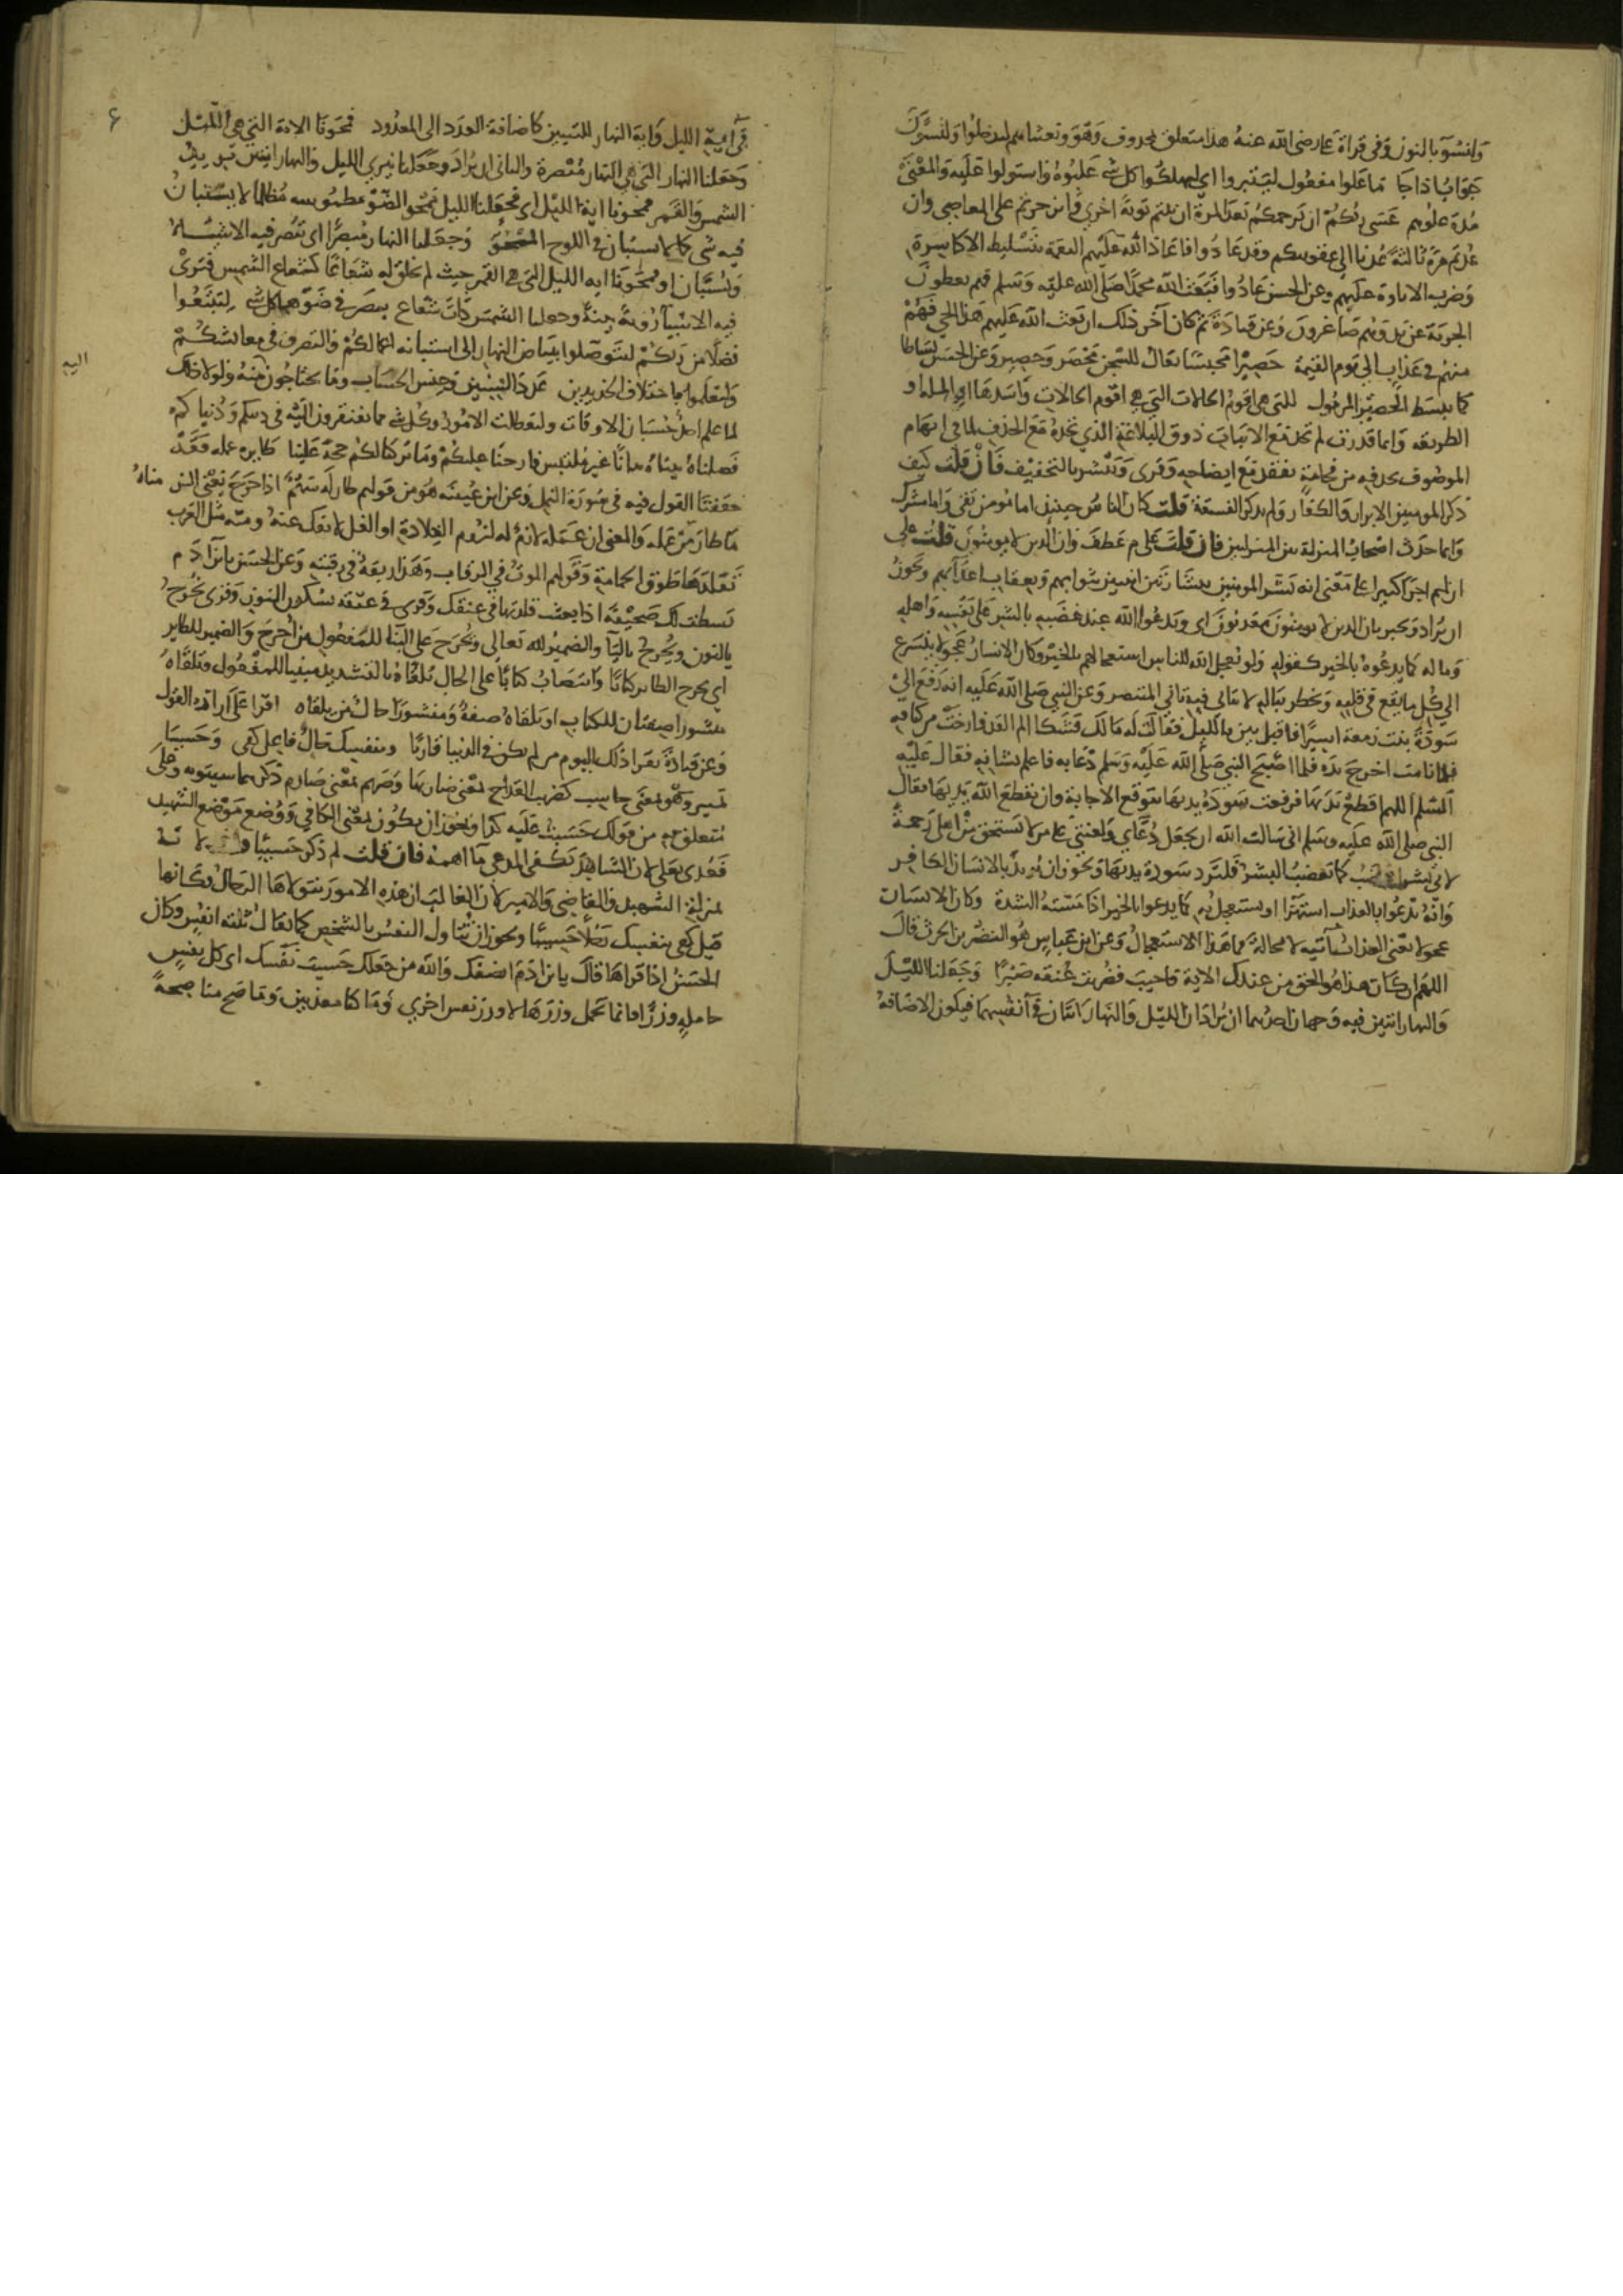 وليسوا بالنون وفى قراة على رضى الله عنه هذا متعلق بمحذوف وهو وبعثناهم ليدخلوا ولنسوان
جوابا ذا جا ما علوا مفعول ليتبروا اى ليهلكوا كل شى غلبوه واستولوا عليه والمعنى
مدة علوهم عسى ربكم ان يرحمكم بعد المرة ان تبتم توبة اخرى وانزجرتم على المعاصى وان
عدتم مرة ثالثة عدنا الى عقوبتكم وقد عادوا فاعاذ الله عليهم النقمة بتسليط الاكاسرة
وضرب الاتاوة عليهم وعن الحسن عادوا فبعث الله محمدا صلى الله عليه وسلم فهم يعطون
الجزية عن يد وهم صاغرون وعن قتادة ثم كان آخر ذلك ان بعث الله عليهم هذا الحى فهم
منهم فى عذاب الى يوم القيمة حصيرا محبسا يقال للسجن محصر وحصير وعن الحسن بساطا
كما يبسط الحصير المرمول للتى هى اقوم للحالات التى هى اقوم الحالات واسدها او للملة او
الطريقة وايما قدرت لم تجد مع الاثبات ذوق البلاغة الذى تجده مع الحذف لما فى ابهام
الموصوف بحذفه من فخامة تفقد مع ايضاحه وقرى ويبشر بالتخفيف فان قلت كيف
ذكر المومنين الابرار والكفار ولم يذكر الفسقة قلت كان الناس حينيذ اما مومن تقى واما مشرك
وانما حدث اصحاب المنزلة بين المنزلتين فان قلت علام عطف وان الذين لا يومنون قلت على
ان لهم اجرا كبيرا على معنى انه بشر المومنين ببشارتين اثنتين بثوابهم وبعقاب اعدآيهم ويجوز
ان يراد ويخبر بان الذين لا يومنون معذبون اى ويدعو الله عند غضبه بالشر على نفسه واهله
وماله كما يدعوه بالخير كقوله ولو يعجل الله للناس استعجالهم بالخير وكان الانسان عجولا يتسرع
الى كل ما يقع فى قلبه ويخطر بباله لا يتانى فيه تانى المتبصر وعن النبى صلى الله عليه انه دفع الى
سودة بنت زمعة اسيرا فاقبل يين بالليل فقالت له مالك فشكا الم القد فارخت من كتافه
فلما نامت اخرج يده فلما اصبح النبى صلى الله عليه وسلم دعا به فاعلم بشانه فقال عليه
السلم اللهم اقطع يديها فرفعت سودة يديها تتوقع الاجابة وان يقطع الله يديها فقال
النبى صلى الله عليه وسلم انى سالت الله ان يجعل دعآى ولعنتى على من لا يستحق من اهلى رحمة
لانى بشر اغضب كما يغضب البشر فلترد سودة يديها ويجوز ان يريد بالانسان الكافر
وانه يدعوا بالعذاب استهزآ ويستعجل به كما يدعوا بالخير اذا مسته الشدة وكان الانسان
عجولا يعنى العذاب آتيه لا محالة فما هذا الاستعجال وعن ابن عباس هو النضر بن الحرث قال
اللهم ان كان هذا هو الحق من عندك الاية فاجيب فضربت عنقه صبرا وجعلنا الليل
والنهار ايتين فيه وجهان احدهما ان يراد ان الليل والنهار ايتان فى انفسهما فيكون الاضافة
٤
فى اية الليل واية النهار للتبيين كاضافة العدد الى المعدود فمحونا الاية التى هى الليل
وجعلنا النهار التى هى النهار مبصرة والثانى ان يراد وجعلنا نيرى الليل والنهار ايتين يريد
الشمس والقمر فمحونا اية الليل اى فجعلنا الليل ممحو الضو مطموسه مظلما لا يستبان
فيه شى كما لا يستبان فى اللوح الممحو وجعلنا النهار مبصرا اى تبصر فيه الاشيآ
وتستبان او فمحونا اية الليل التى هى القمر حيث لم نخلق له شعاعا كشعاع الشمس فترى
فيه الاشيآ رؤية بينة وجعلنا الشمس ذات شعاع يبصر فى ضوها كل شى لتبتغوا
فضلا من ربكم لتتوصلوا ببياض النهار الى استبانة اعمالكم والتصرف فى معايشكم
ولتعلموا باختلاف الجديدين عدد السنين وجنس الحساب وما تحتاجون منه ولولا ذلك
اليه
لما علم احد حسبان الاوقات ولتعطلت الامور وكل شى مما تفتقرون اليه فى دينكم ودنياكم
فصلناه بيناه بيانا غير ملتبس فازحنا عللكم وما تركنا لكم حجة علينا طايره عمله وقد
حققنا القول فيه فى سورة النمل وعن ابن عيينة هو من قولهم طار له سهم اذا خرج يعنى الزمناه
ما طار من عمله والمعنى ان عمله لازم له لزوم القلادة او الغل لا يفك عنه ومنه مثل العرب
تقلدها طوق الحمامة وقولهم الموت فى الرقاب وهذا ربقة فى رقبته وعن الحسن يابن آدم
بسطت لك صحيفة اذا بعثت قلدتها فى عنقك وقرى فى عنقه بسكون النون وقرى نخرج
بالنون ويخرج باليآ والضمير لله تعالى ويخرج على البنآ للمفعول من اخرج والضمير للطاير
اى يخرج الطاير كتابا وانتصاب كتابا على الحال يلقاه بالتشديد مبنيا للمفعول ويلقاه
منشورا صفتان للكتاب او يلقاه صفة ومنشورا حال من يلقاه اقرا على ارادة القول
وعن قتادة يقرا ذلك اليوم من لم يكن فى الدنيا قاريا وبنفسك فاعل كفى وحسيبا
تمييز وهو بمعنى حاسب كضريب القداح بمعنى ضاربها وصريم بمعنى صارم ذكرهما سيبويه وعلى
متعلق به من قولك حسب عليه كذا ويجوز ان يكون بمعنى الكافى ووضع موضع الشهيد
فعدى بعلى لان الشاهد يكفى المدعى ما اهمه فان قلت لم ذكر حسيبا قلت لانه
بمنزلة الشهيد والقاضى والامير لان الغالب ان هذه الامور يتولاها الرجال وكانها
قيل كفى بنفسك رجلا حسيبا ويجوز ان يتناول النفس بالشخص كما يقال ثلثة انفس وكان
الحسن اذا قراها قال يابن ادم انصفك والله من جعلك حسيب نفسك اى كل نفس
حاملة وزرا فانما تحمل وزرها لا وزر نفس اخرى وما كنا معذبين وما صح منا صحة